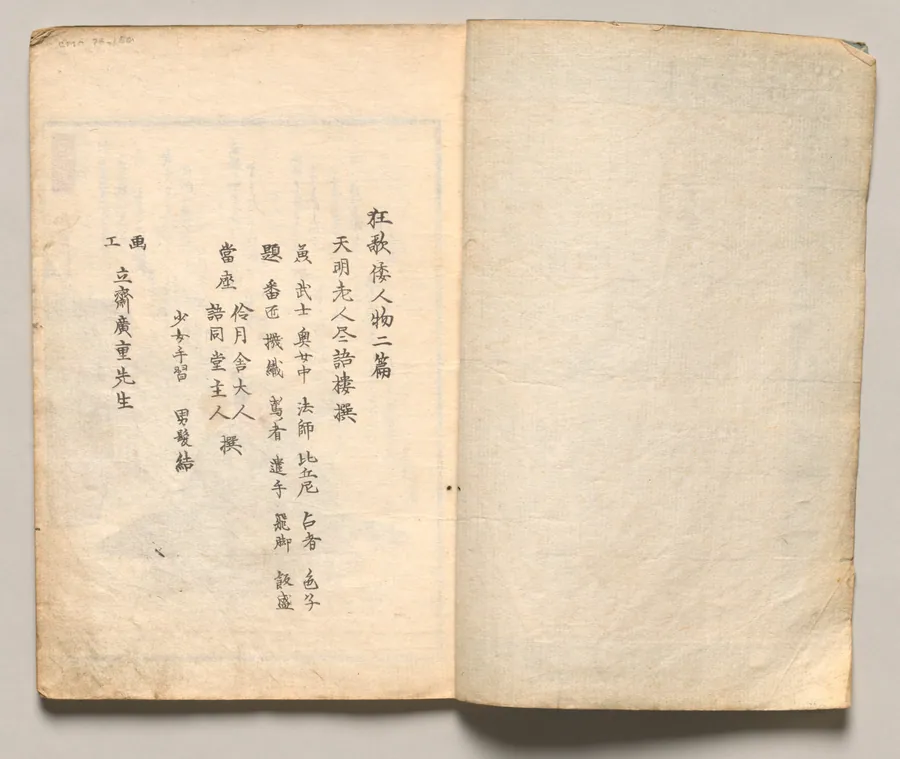 狂歌倭人物二篇
天明老人尽語樓撰
兼題
武士 奥女中 法師 比丘尼 占者 色子
番匠 機織 駕者 遣手 飛脚 飯盛
當座
伶月舎大人
語同堂主人 撰
少女手習 男髪結
画工
立齋廣重先生